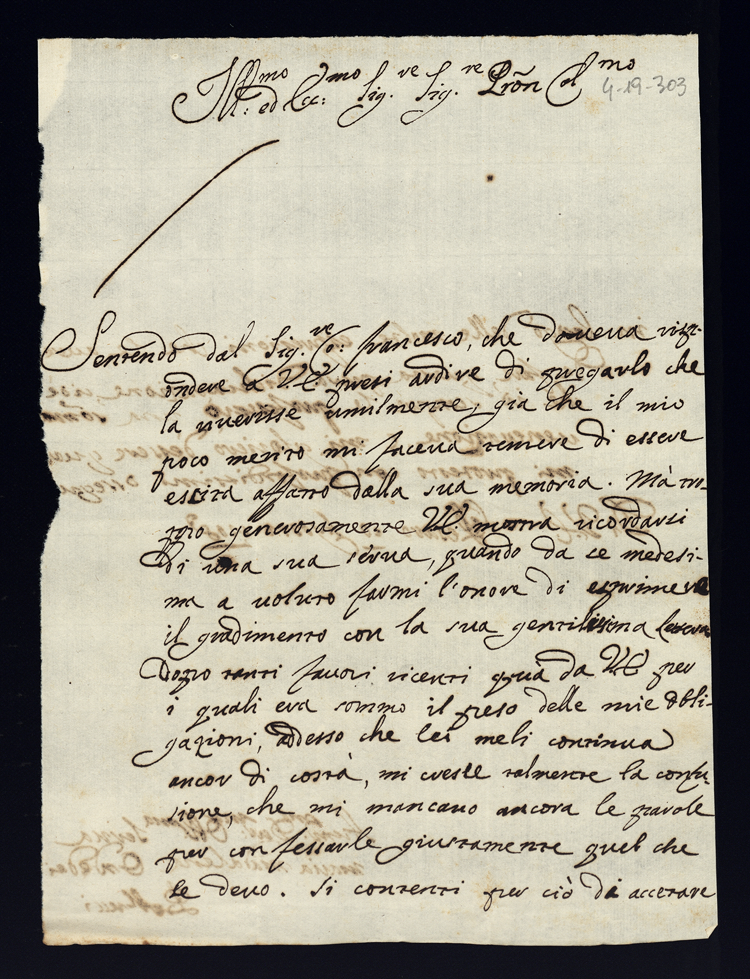 Ill:mo ed Ecc:mo Sig.re Sig.re Prōn Col.mo
4-19-303
Sentendo dal Sig.re Co: francesco, che doueua risp-
ondere a V.E. presi ardire di pregarlo che
la riuerisse umilmente, gia che il mio
poco merito mi faceua temere di essere
escita affatto dalla sua memoria. Mà tro-
ppo generosamente V.E. mostra ricordarsi
di una sua serua, quando da se medesi-
ma a voluto farmi l'onore di esprimere
il gradimento con la sua gentilissima lettera
Dopo tanti fauori riceuti quà da V.E. per
i quali era sommo il peso delle mie obli-
gazioni, addesso che lei meli continua
ancor di costà, mi creste talmente la confu-
sione, che mi mancano ancora le parole
per confessarle giustamente quel che
le deuo. Si contenti per ciò di accetare